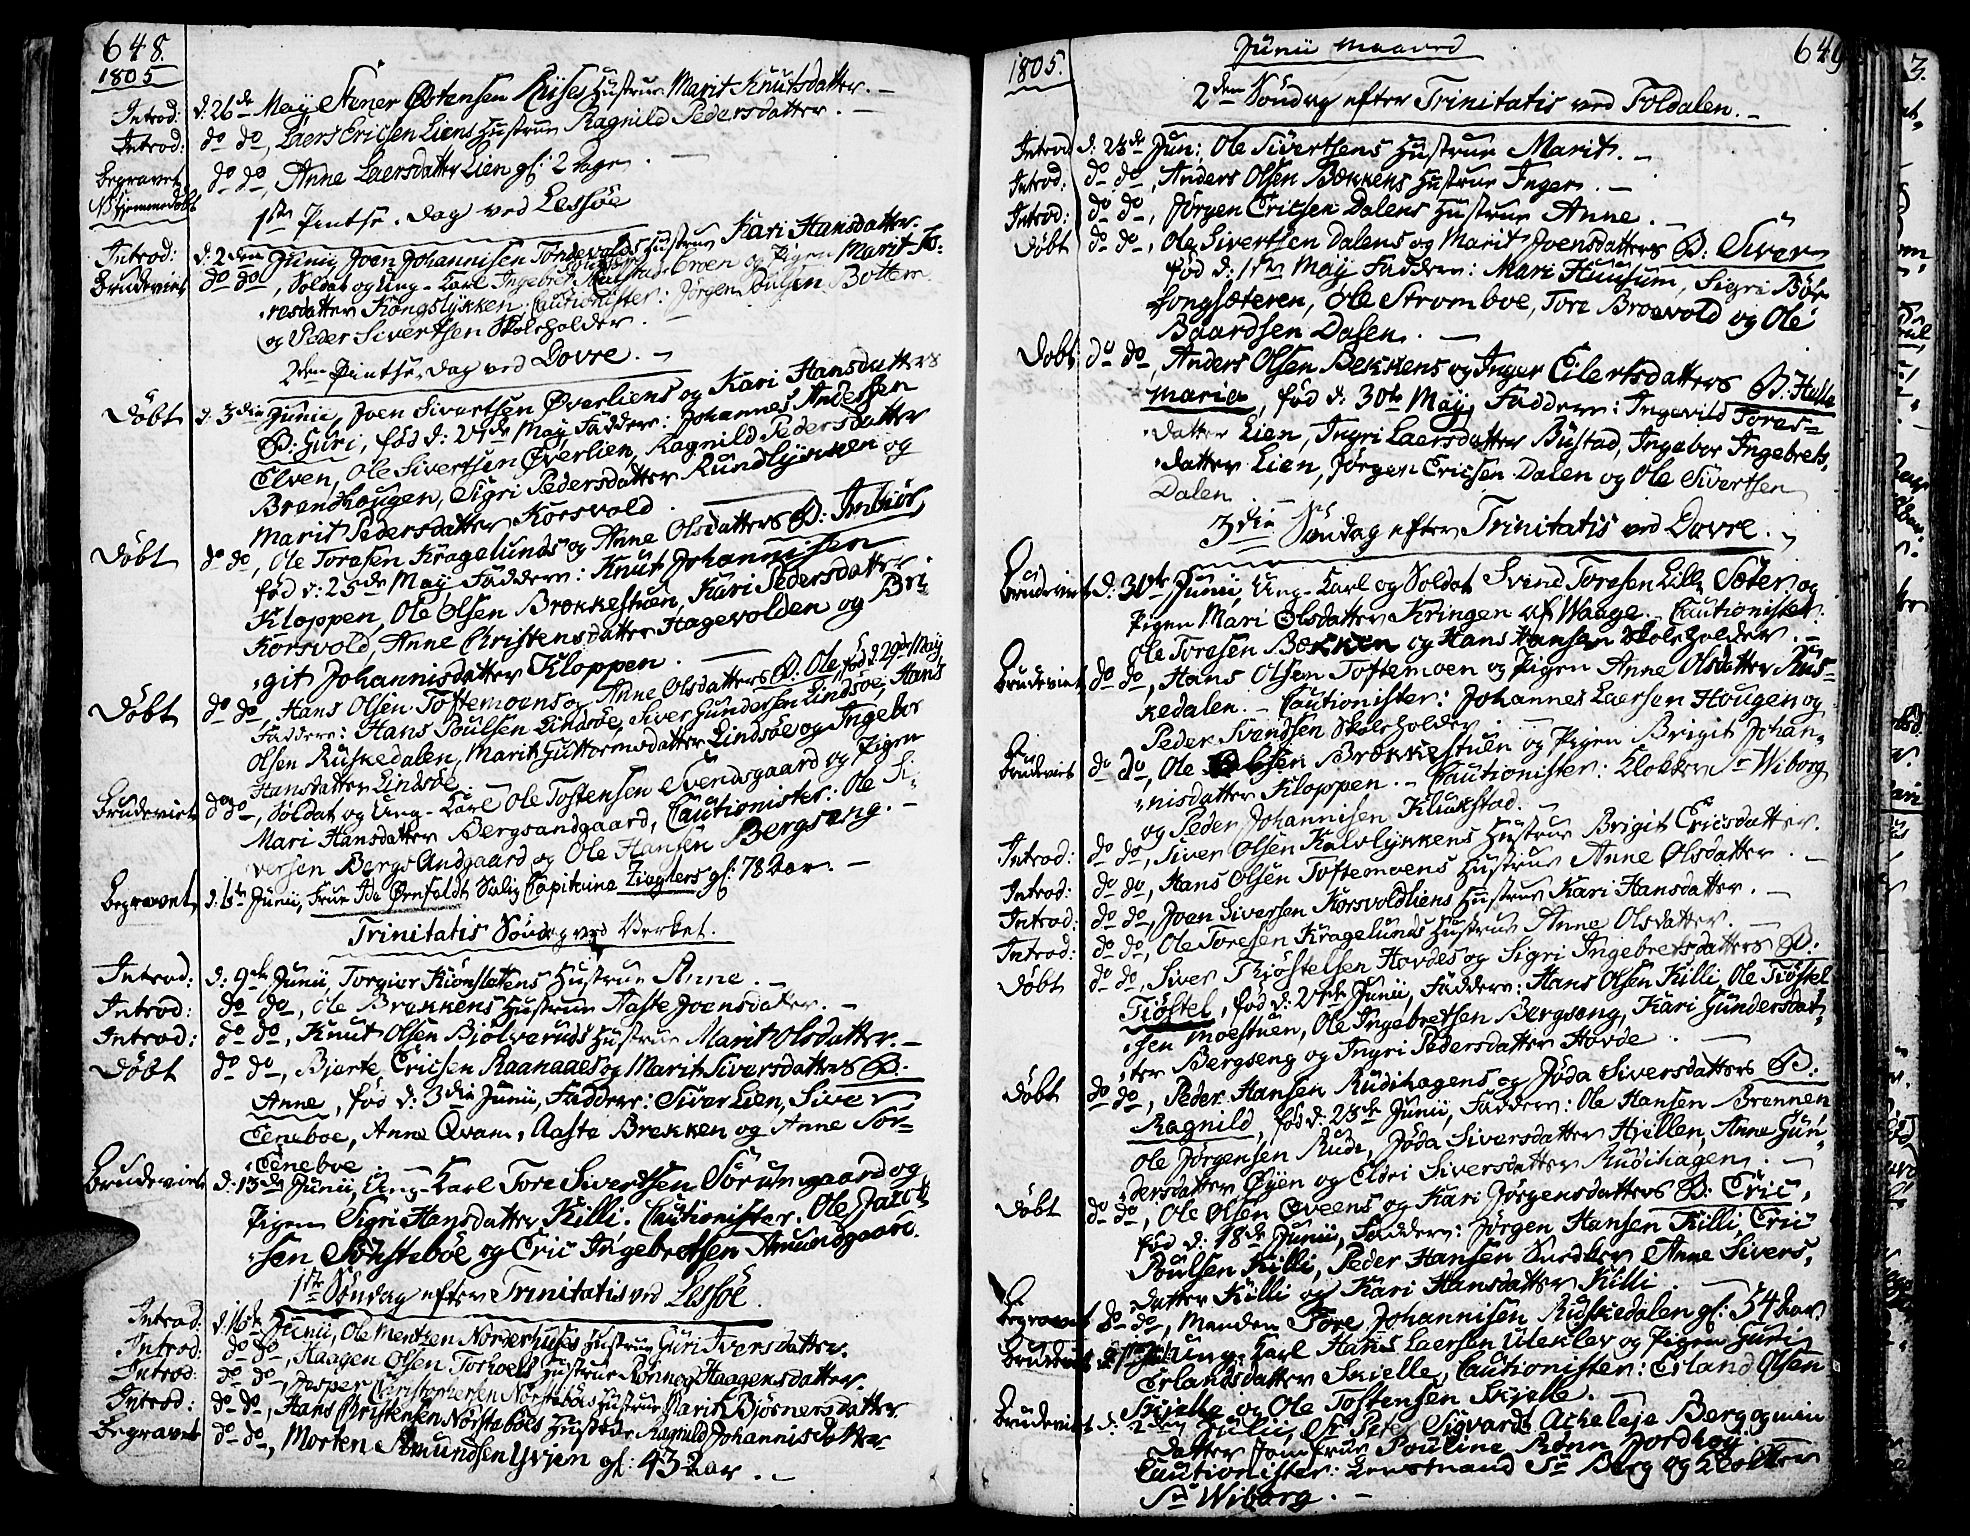 648.
1805
Introd: d: 26de May Stener Østensen Ryses Hustrue Marit Knutsdatter. —
Introd: do do, Laers Ericsen Liens Hustrue Ragnild Pedersdatter. —
Begravet do do, Anne Laersdatter Lien gl: 2 Dage. —
NB hjemmedøbt
1ste Pintse-Dag ved Lessøe
Introd: d: 2den Junii Joen Johannisen Tøndevolds Hustrue Kari Hansdatter.
Brudeviet do do, Soldat og Ung-Karl Ingebret broen og Pigen Marit To-
resdatter Kongslykken. Cautionister: Jørgen Poulsen Bottem
og Peder Sivertsen Skoleholder. —
2den Pintse-Dag ved Dovre. —
Døbt d: 3die Junii, Joen Sivertsen Øverliens og Kari Hansdatters
B: Guri, fød d: 27de May Faddere: Johannes Andersen
Elven, Ole Sivertsen Øverlien, Ragnild Pedersdatter
Brendhougen, Sigri Pedersdatter Rundlykken og
Marit Pedersdatter Korsvold. —
Døbt do do, Ole Toresen Kragelunds og Anne Olsdatters B: Imbiør,
fød d: 25de May Faddere: Knut Johannisen
Kloppen, Ole Olsen Brækkestuen, Kari Pedersdatter
Korsvold, Anne Christensdatter Hagevolden og Bri-
git Johannisdatter Kloppen. —
Døbt do do, Hans Olsen Toftemoens og Anne Olsdatters B: Ole fød d: 29de May
Faddere: Hans Poulsen Lindsøe, Siver Gundersen Lindsøe, Hans
Olsen Ruskedalen, Marit Guttormsdatter Lindsøe og Ingebor
Hansdatter Lindsøe.
Brudeviet do do, Soldat og Ung-Karl Ole Tostensen Svendsgaard og Pigen
Mari Hansdatter Bergsandgaard, Cautionister: Ole Si-
versen Bergs Andgaard og Ole Hansen Bergseng. —
Begravet d: 6te Junii, Frue Ide Ørnfeldt Salig Capitaine Zieglers gl: 78 Aar. —
Trinitatis Søndag ved Verket.
Introd: d: 9de Junii, Torgier Kiønsletens Hustrue Anne. —
Introd: do do, Ole Brækkens Hustrue Aaste Joensdatter. —
Introd: do do, Knut Olsen Bjølveruds Hustrue Marit Olsdatter. —
Døbt do do, Bjarte Ericsen Raanaaes og Marit Siversdatters B:
Anne, fød d: 3die Junii, Faddere: Siver Lien, Siver
Eeneboe, Anne Qvam, Aaste Brækken og Anne Sør-
Eeneboe.
Brudeviet d: 13de Junii, Ung-Karl Tore Sivertsen Sørumgaard og
Pigen Sigri Hansdatter Killi. Cautionister: Ole Jacob-
sen Sønsteböe og Eric Ingebretsen Amundgaard.
1ste Søndag efter Trinitatis ved Lessøe.
Introd: d: 16de Junii, Ole Mentzen Norderhuses Hustrue Guri Iversdatter.
Introd: do do, Haagen Olsen Torhoels Hustrue Rønnog Haagensdatter.
Introd: do do, Jesper Christophersen Nørstebøes Hustrue Marit Bjørnersdatter
Introd: do do, Hans Christensen Nørstebøes Hustrue Ragnild Johannisdatter
Begravet do do, Morten Amundsen Yvjen gl: 43 Aar. —
1805.
Junii Maaned
649
2den Søndag efter Trinitatis ved Foldalen. —
Introd: d: 23de Jun: Ole Sivertsens Hustrue Marit. —
Introd: do do, Anders Olsen Bækkens Hustrue Inger. —
Introd: do do, Jørgen Ericsen Dalens Hustrue Anne. —
Døbt do do, Ole Sivertsen Dalens og Marit Joensdatters B: Siver
fød d: 1ste May Faddere: Mari Huusum, Sigri Bör-
fongsæteren, Ole Stromboe, Tore Broevold og Ole
Baardsen Dalen. —
Døbt do do, Anders Olsen Bekkens og Inger Eilertsdatters B: Hulle
Maria, fød d: 30te May, Faddere: Ingevild Tores-
datter Lien, Ingri Laersdatter Bustad, Ingebor Ingebrets-
datter Lien, Jørgen Ericsen Dalen og Ole Sivertsen
Dalen. —
3die Søndag efter Trinitatis ved Dovre. —
Brudeviet d: 30te Junii, Ung-Karl og Soldat Svend Toresen Lille Sæter og
Pigen Mari Olsdatter Kringen af Waage. Cautionister:
Ole Toresen Bækken og Hans Hansen Skoleholder. —
Brudeviet do do, Hans Olsen Toftemoen og Pigen Anne Olsdatter Rus-
kedalen. — Cautionister: Johannes Laersen Hougen og
Peder Svendsen Skoleholder. —
Brudeviet do do, Ole Olsen Brækkestuen og Pigen Brigit Johan-
nisdatter Kloppen. — Cautionister: Klokker Sr Wiborg
og Peder Johannisen Klukstad. —
Introd: do do, Siver Olsen Kalvlykkens Hustrue Brigit Ericsdatter.
Introd: do do, Hans Olsen Toftemoens Hustrue Anne Olsdatter. —
Introd: do do, Joen Siversen Korsvoldliens Hustrue Kari Hansdatter. —
Introd: do do, Ole Toresen Kragelunds Hustrue Anne Olsdatter —
Døbt do do, Siver Thjøstelsen Hovdes og Sigri Ingebretsdatters B:
Tiøstel, fød d: 24de Junii, Faddere: Hans Olsen Killi, Ole Tiøstel-
sen Moestuen, Ole Ingebretsen Bergseng, Kari Gundersdat-
ter Bergseng og Ingri Pedersdatter Hovde. —
Døbt do do, Peder Hansen Rudihagens og Jøda Siversdatters B:
Ragnild, fød d: 23de Junii, Faddere: Ole Hansen Brennen
Ole Jørgensen Rude, Jøda Siversdatter Hjellen, Anne Gun-
dersdatter Øyen og Eldri Siversdatter Rudihagen. —
Døbt do do, Ole Olsen Øveens og Kari Jørgensdatters B: Eric,
fød d: 18de Junii, Faddere: Jørgen Hansen Killi, Eric
Poulsen Killi, Peder Hansen Snedker, Anne Sivers-
datter Killi og Kari Hansdatter Killi. —
Begravet do do, Manden Tore Johannisen Ruskedalen gl: 54 Aar
Brudeviet Ung-Karl Hans Laersen Ulekler og Pigen Guri
Erlandsdatter Skjelle, Cautionister: Erland Olsen
Skjelle og Ole Tostensen Skjelle. —
Brudeviet d: 2den Julii, Sr Peter Sigvardt Acheleje Berg og min
Datter Jomfrue Pouline Rønn Jordhøy
Cautionister: Lensmand Sr Berg og Klokker
Sr Wiborg. —